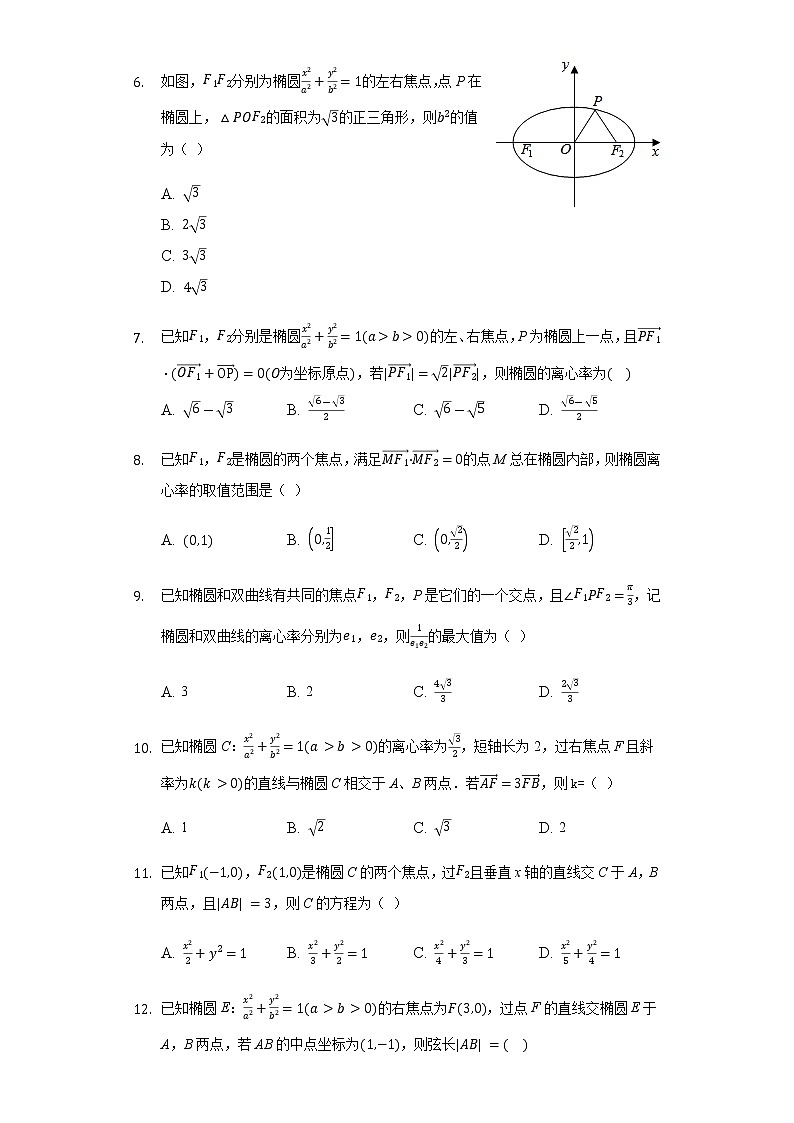 6. 如图，F₁F₂分别为椭圆x²/a²+y²/b²=1的左右焦点,点 P 在
椭圆上，△POF₂的面积为√3的正三角形，则b²的值
为（ ）
y
P
F₁
O
F₂
x
A. √3
B. 2√3
C. 3√3
D. 4√3
7. 已知F₁，F₂分别是椭圆x²/a²+y²/b²=1(a>b>0)的左、右焦点，P为椭圆上一点，且\overrightarrow{PF₁}
·(\overrightarrow{OF₁}+\overrightarrow{OP})=0(O为坐标原点)，若|\overrightarrow{PF₁}|=√2|\overrightarrow{PF₂}|，则椭圆的离心率为( )
A. √6−√3 B. (√6−√3)/2 C. √6−√5 D. (√6−√5)/2
8. 已知F₁，F₂是椭圆的两个焦点，满足\overrightarrow{MF₁}·\overrightarrow{MF₂}=0的点M总在椭圆内部，则椭圆离
心率的取值范围是（ ）
A. (0,1) B. (0,1/2] C. (0,√2/2) D. [√2/2,1)
9. 已知椭圆和双曲线有共同的焦点F₁，F₂，P是它们的一个交点，且∠F₁PF₂=π/3，记
椭圆和双曲线的离心率分别为e₁，e₂，则1/(e₁e₂)的最大值为（ ）
A. 3 B. 2 C. 4√3/3 D. 2√3/3
10. 已知椭圆C：x²/a²+y²/b²=1(a>b>0)的离心率为√3/2，短轴长为 2，过右焦点F且斜
率为k(k>0)的直线与椭圆C相交于A、B两点．若\overrightarrow{AF}=3\overrightarrow{FB}，则 k=（ ）
A. 1 B. √2 C. √3 D. 2
11. 已知F₁(−1,0)，F₂(1,0)是椭圆C的两个焦点，过F₂且垂直 x 轴的直线交C于A，B
两点，且|AB|=3，则C的方程为（ ）
A. x²/2+y²=1 B. x²/3+y²/2=1 C. x²/4+y²/3=1 D. x²/5+y²/4=1
12. 已知椭圆E：x²/a²+y²/b²=1(a>b>0)的右焦点为F(3,0)，过点F的直线交椭圆E于
A，B两点，若AB的中点坐标为(1,−1)，则弦长|AB|=( )